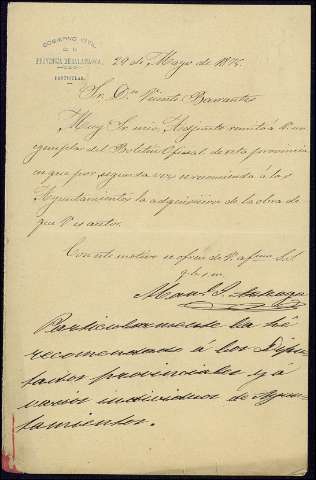 GOBIERNO CIVIL
DE LA
PROVINCIA DE SALAMANCA.
PARTICULAR.
29 de Mayo de 187
Sr. Dn. Vicente Barrantes
Muy Sr. mio: Adjunto remito á V. un
ejemplar del Boletin Oficial de esta provincia
en que por segunda vez se recomienda á los
Ayuntamientos la adquisicion de la obra de
que V. es autor.
Con este motivo se ofrece de V. afmo. S.S.
q. b. s. m.
Particularmente la hé
recomendado á los Dipu-
tados provinciales y á
varios individuos de Ayun-
tamientos.